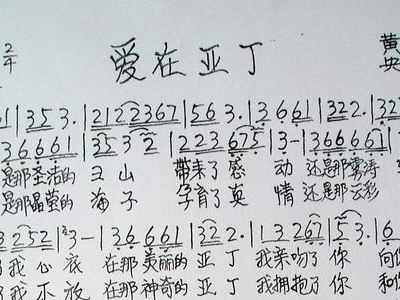 2/4 爱在亚丁 黄
央
1|353.|21222367|563.|3661|322.|32
36661|3532|223675|3-|366661|3
是那圣洁的 雪山 带来了感动 还是那雾涛
是那晶莹的 海子 孕育了真情 还是那云彩
3252|23-|36661|322.|13267|53.|6
了我心底 在那美丽的亚丁 我亲吻了你 向你
了我不放 在那神奇的亚丁 我拥抱了你 和你